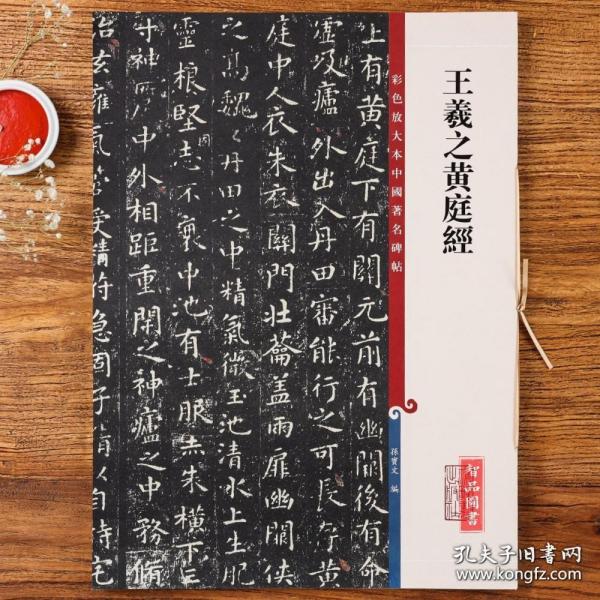 王羲之黄庭經
彩色放大本中國著名碑帖
孫寶文 編
智品圖書
上有黄庭下有關元前有幽關後有命
廬外出入丹田審能行之可長存黄
庭中人衣朱衣關門壯蘥蓋兩扉幽關俠
之高魏丹田之中精氣微玉池清水上生肥
靈根堅志不衰中池有士服赤朱橫下三
中外相距重閉之神廬之中務脩
治玄雍氣管受精符急固子精以自持宅
孔夫子旧書网
www.kongfz.com